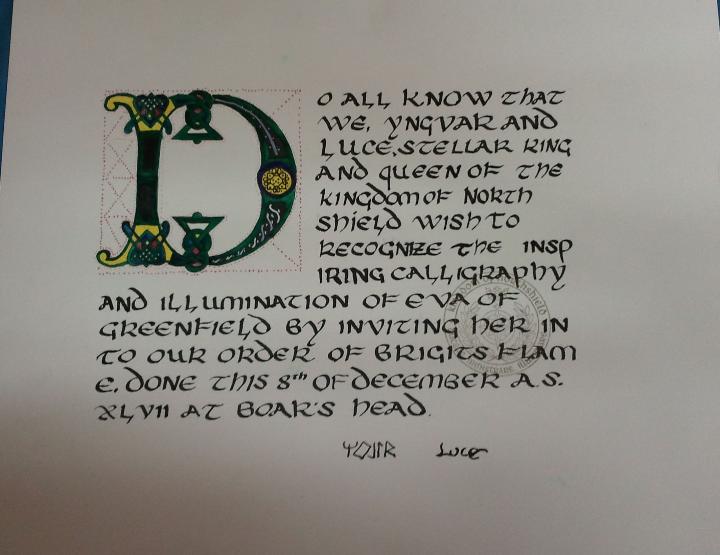 DO ALL KNOW THAT
WE, YNGVAR AND
LUCE, STELLAR KING
AND QUEEN OF THE
KINGDOM OF NORTH
SHIELD WISH TO
RECOGNIZE THE INSP
IRING CALLIGRAPHY
AND ILLUMINATION OF EVA OF
GREENFIELD BY INVITING HER IN
TO OUR ORDER OF BRIGITS FLAM
E. DONE THIS 8th OF DECEMBER A.S.
XLVII AT BOAR'S HEAD.
Luce